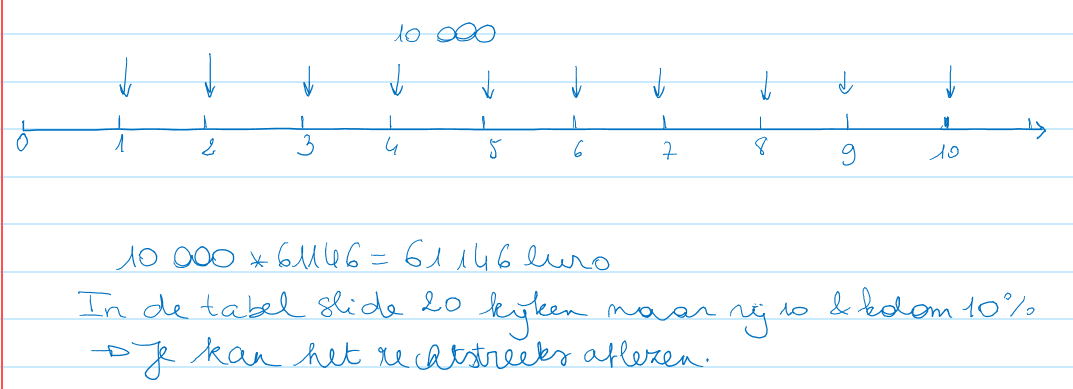 10 000
0 1 2 3 4 5 6 7 8 9 10
10 000 * 61146 = 61 146 euro
In de tabel slide 20 kijken naar rij 10 & kolom 10%
→ Je kan het rechtstreeks aflezen.